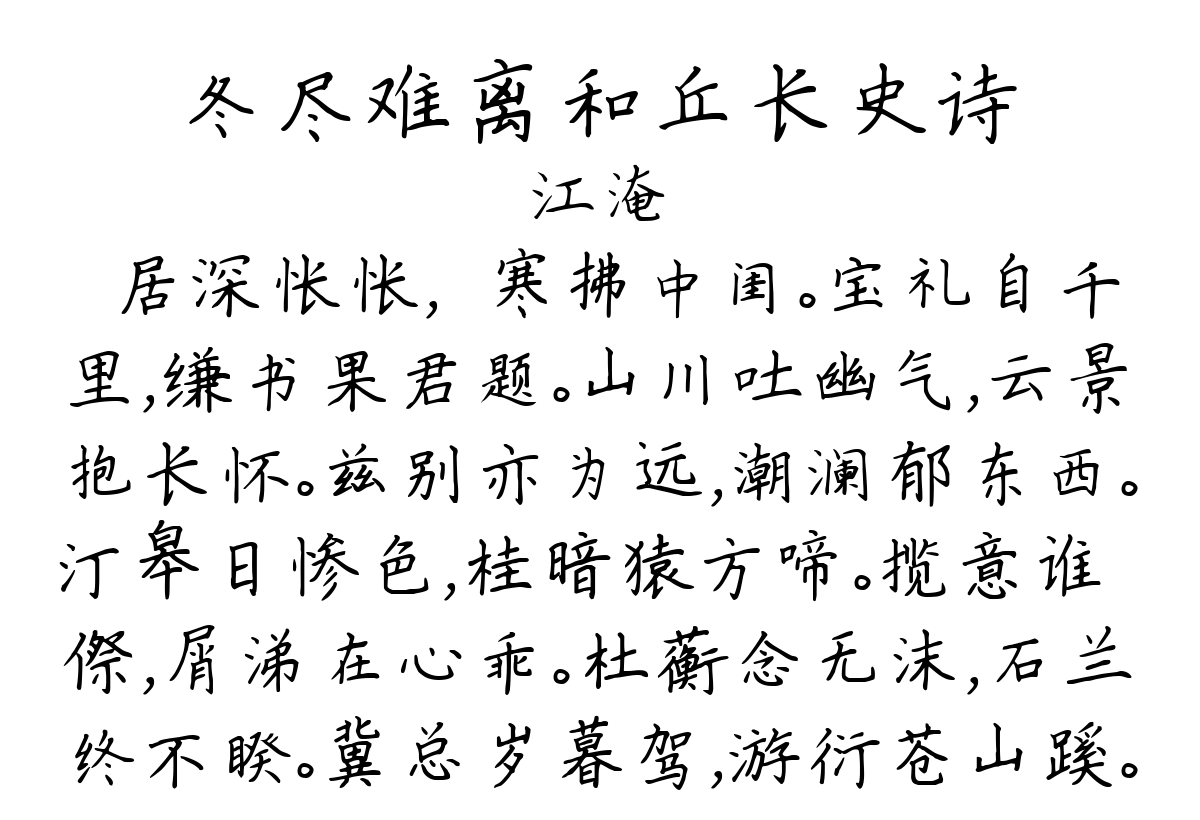 冬尽难离和丘长史诗
江淹
居深怅怅,寒拂中闺。宝礼自千
里,缣书果君题。山川吐幽气,云景
抱长怀。兹别亦为远,潮澜郁东西。
汀皋日惨色,桂暗猿方啼。揽意谁
傺,屑涕在心乖。杜蘅念无沫,石兰
终不暌。冀总岁暮驾,游衍苍山蹊。